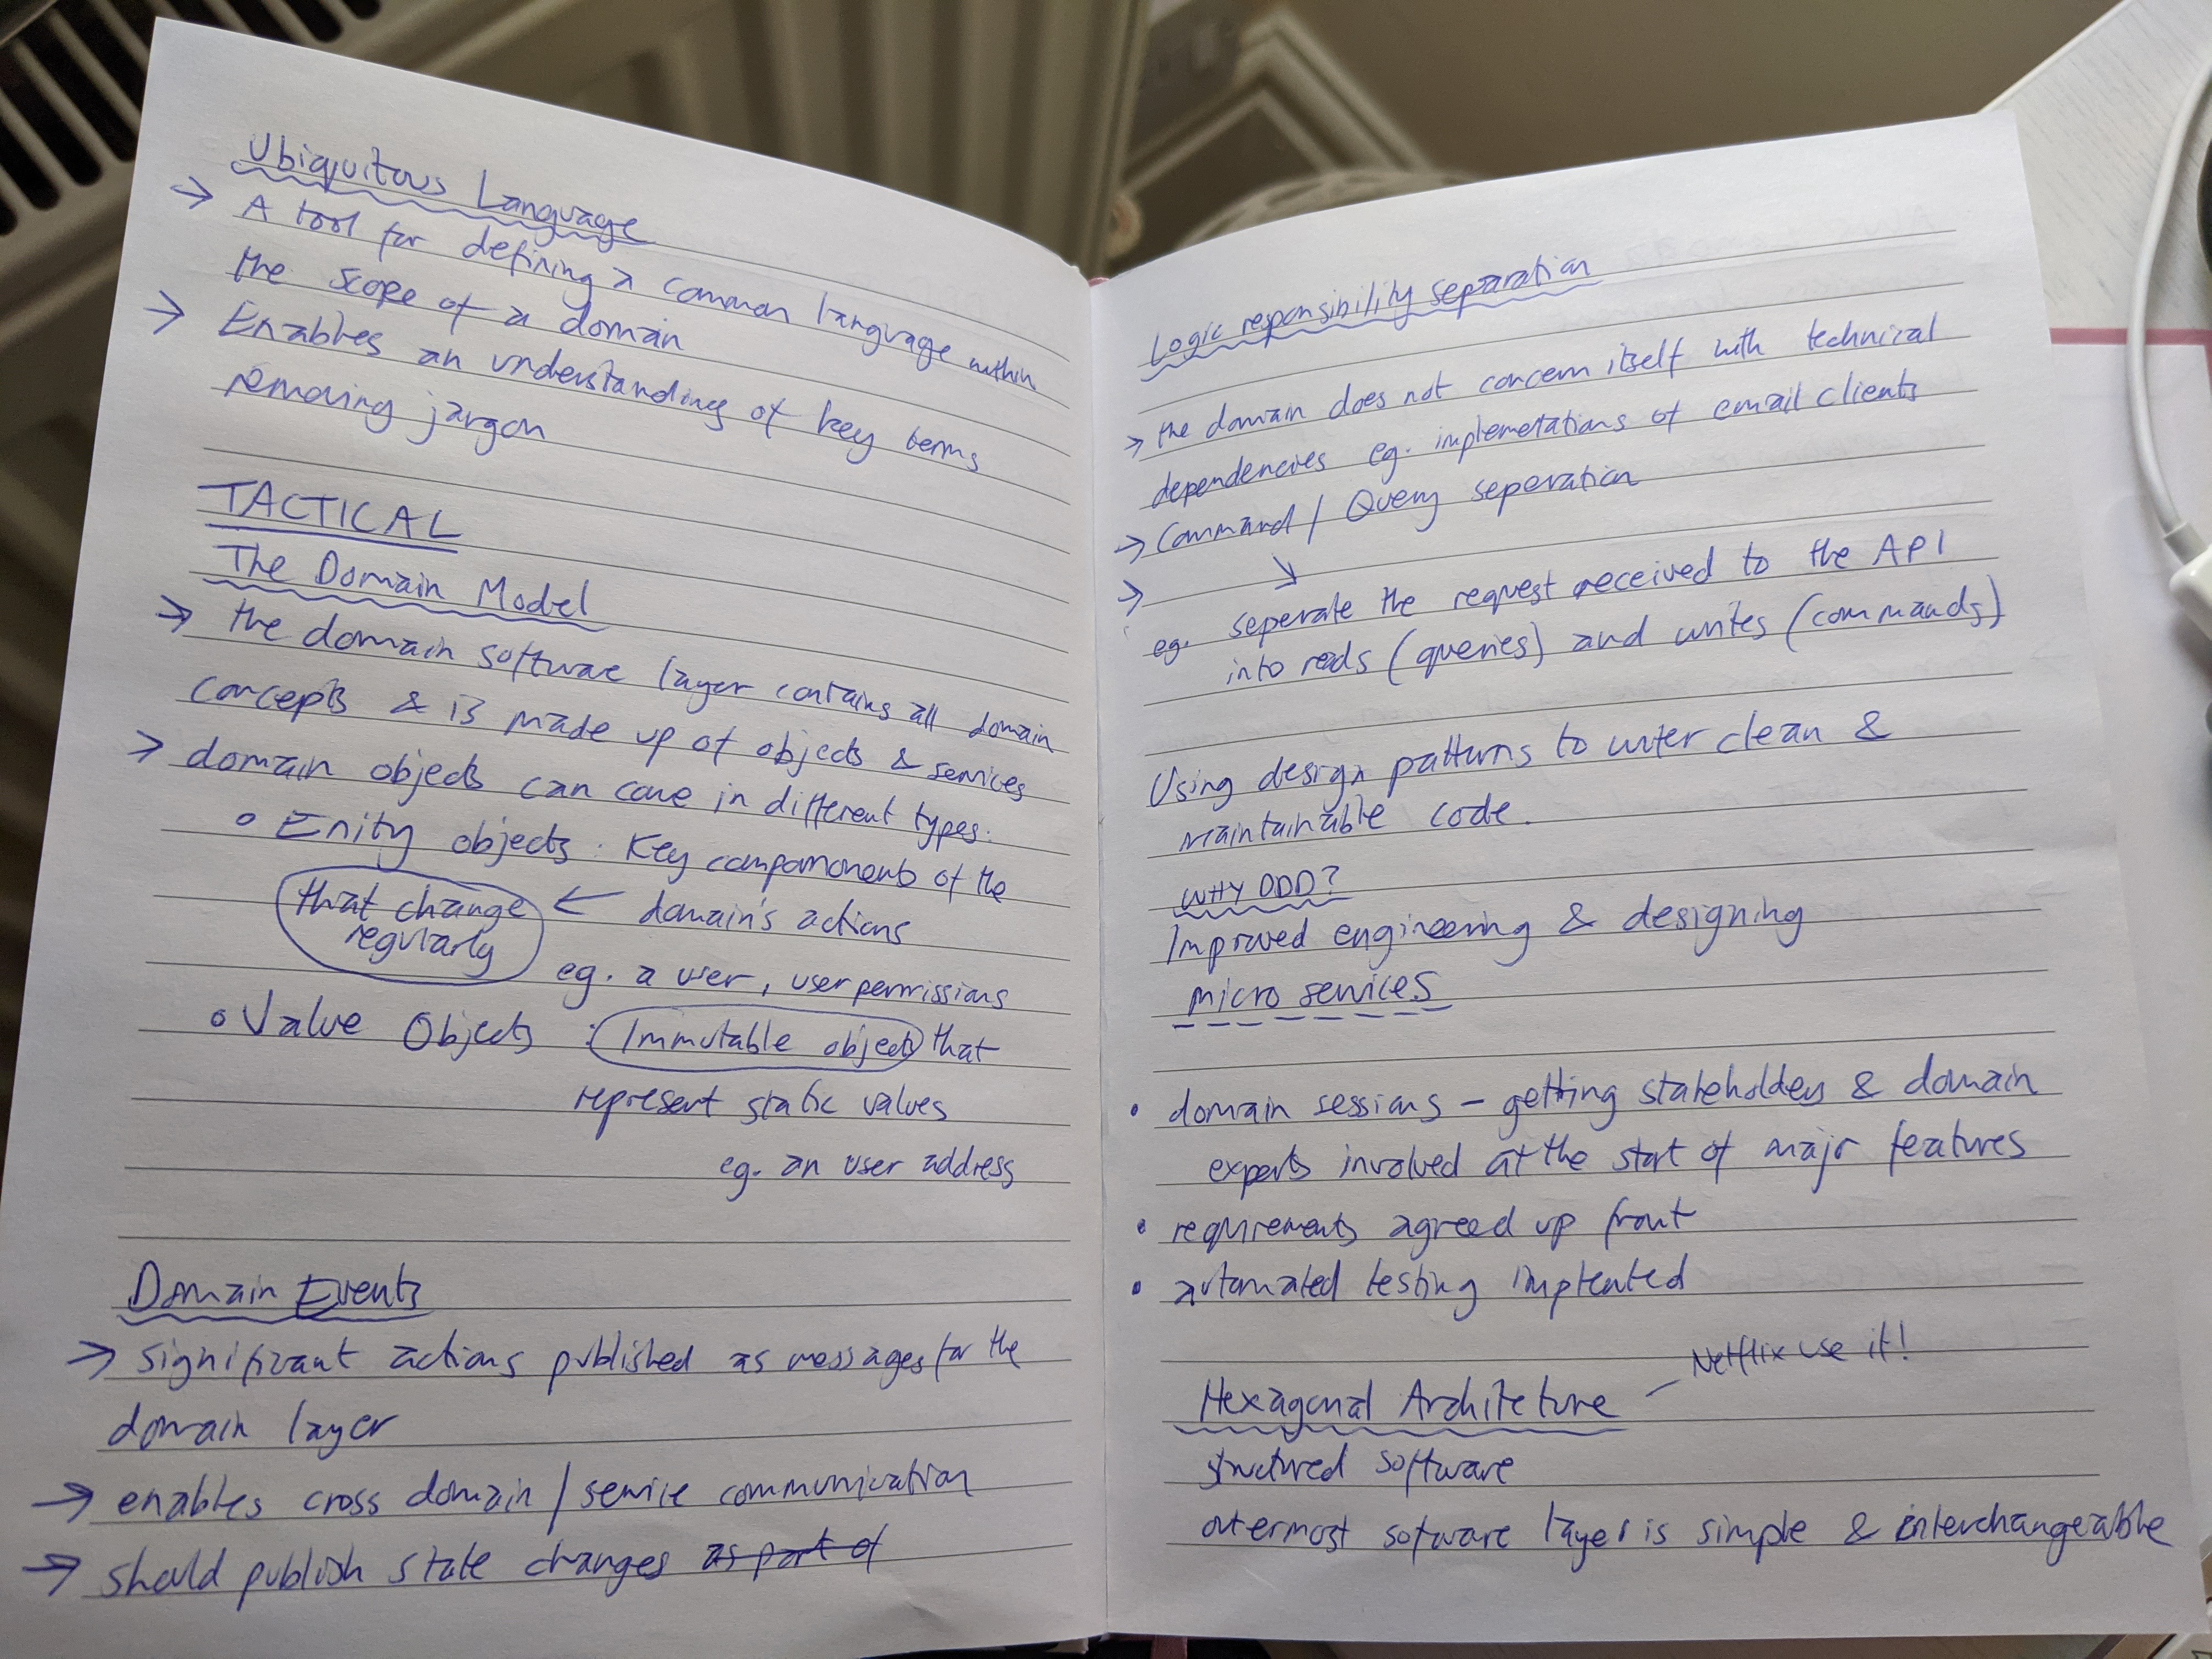 Ubiquitous Language
→ A tool for defining a common language within
the scope of a domain
→ Enables an understanding of key terms
removing jargon
TACTICAL
The Domain Model
→ the domain software layer contains all domain
concepts & is made up of objects & services
→ domain objects can come in different types:
• Enity objects : Key compomonents of the
that change ← domain's actions
regularly
eg. a user, user permissions
• Value Objects : Immutable objects that
represent static values
eg. an user address
Domain Events
→ significant actions published as messages for the
domain layer
→ enables cross domain / service communication
→ should publish state changes as part of
Logic responsibility separation
→ the domain does not concern itself with technical
dependencies eg. implemetations of email clients
→ Command / Query seperation
→ ↘
eg. seperate the request received to the API
into reads (queries) and writes (commands)
Using design patterns to writer clean &
maintainable code.
WHY DDD?
Improved engineering & designing
micro services
• domain sessions - getting stakeholders & domain
experts involved at the start of major features
• requirements agreed up front
• automated testing implented
Netflix use it!
Hexagonal Architeture
structured software
outermost sotware layer is simple & interchangeable